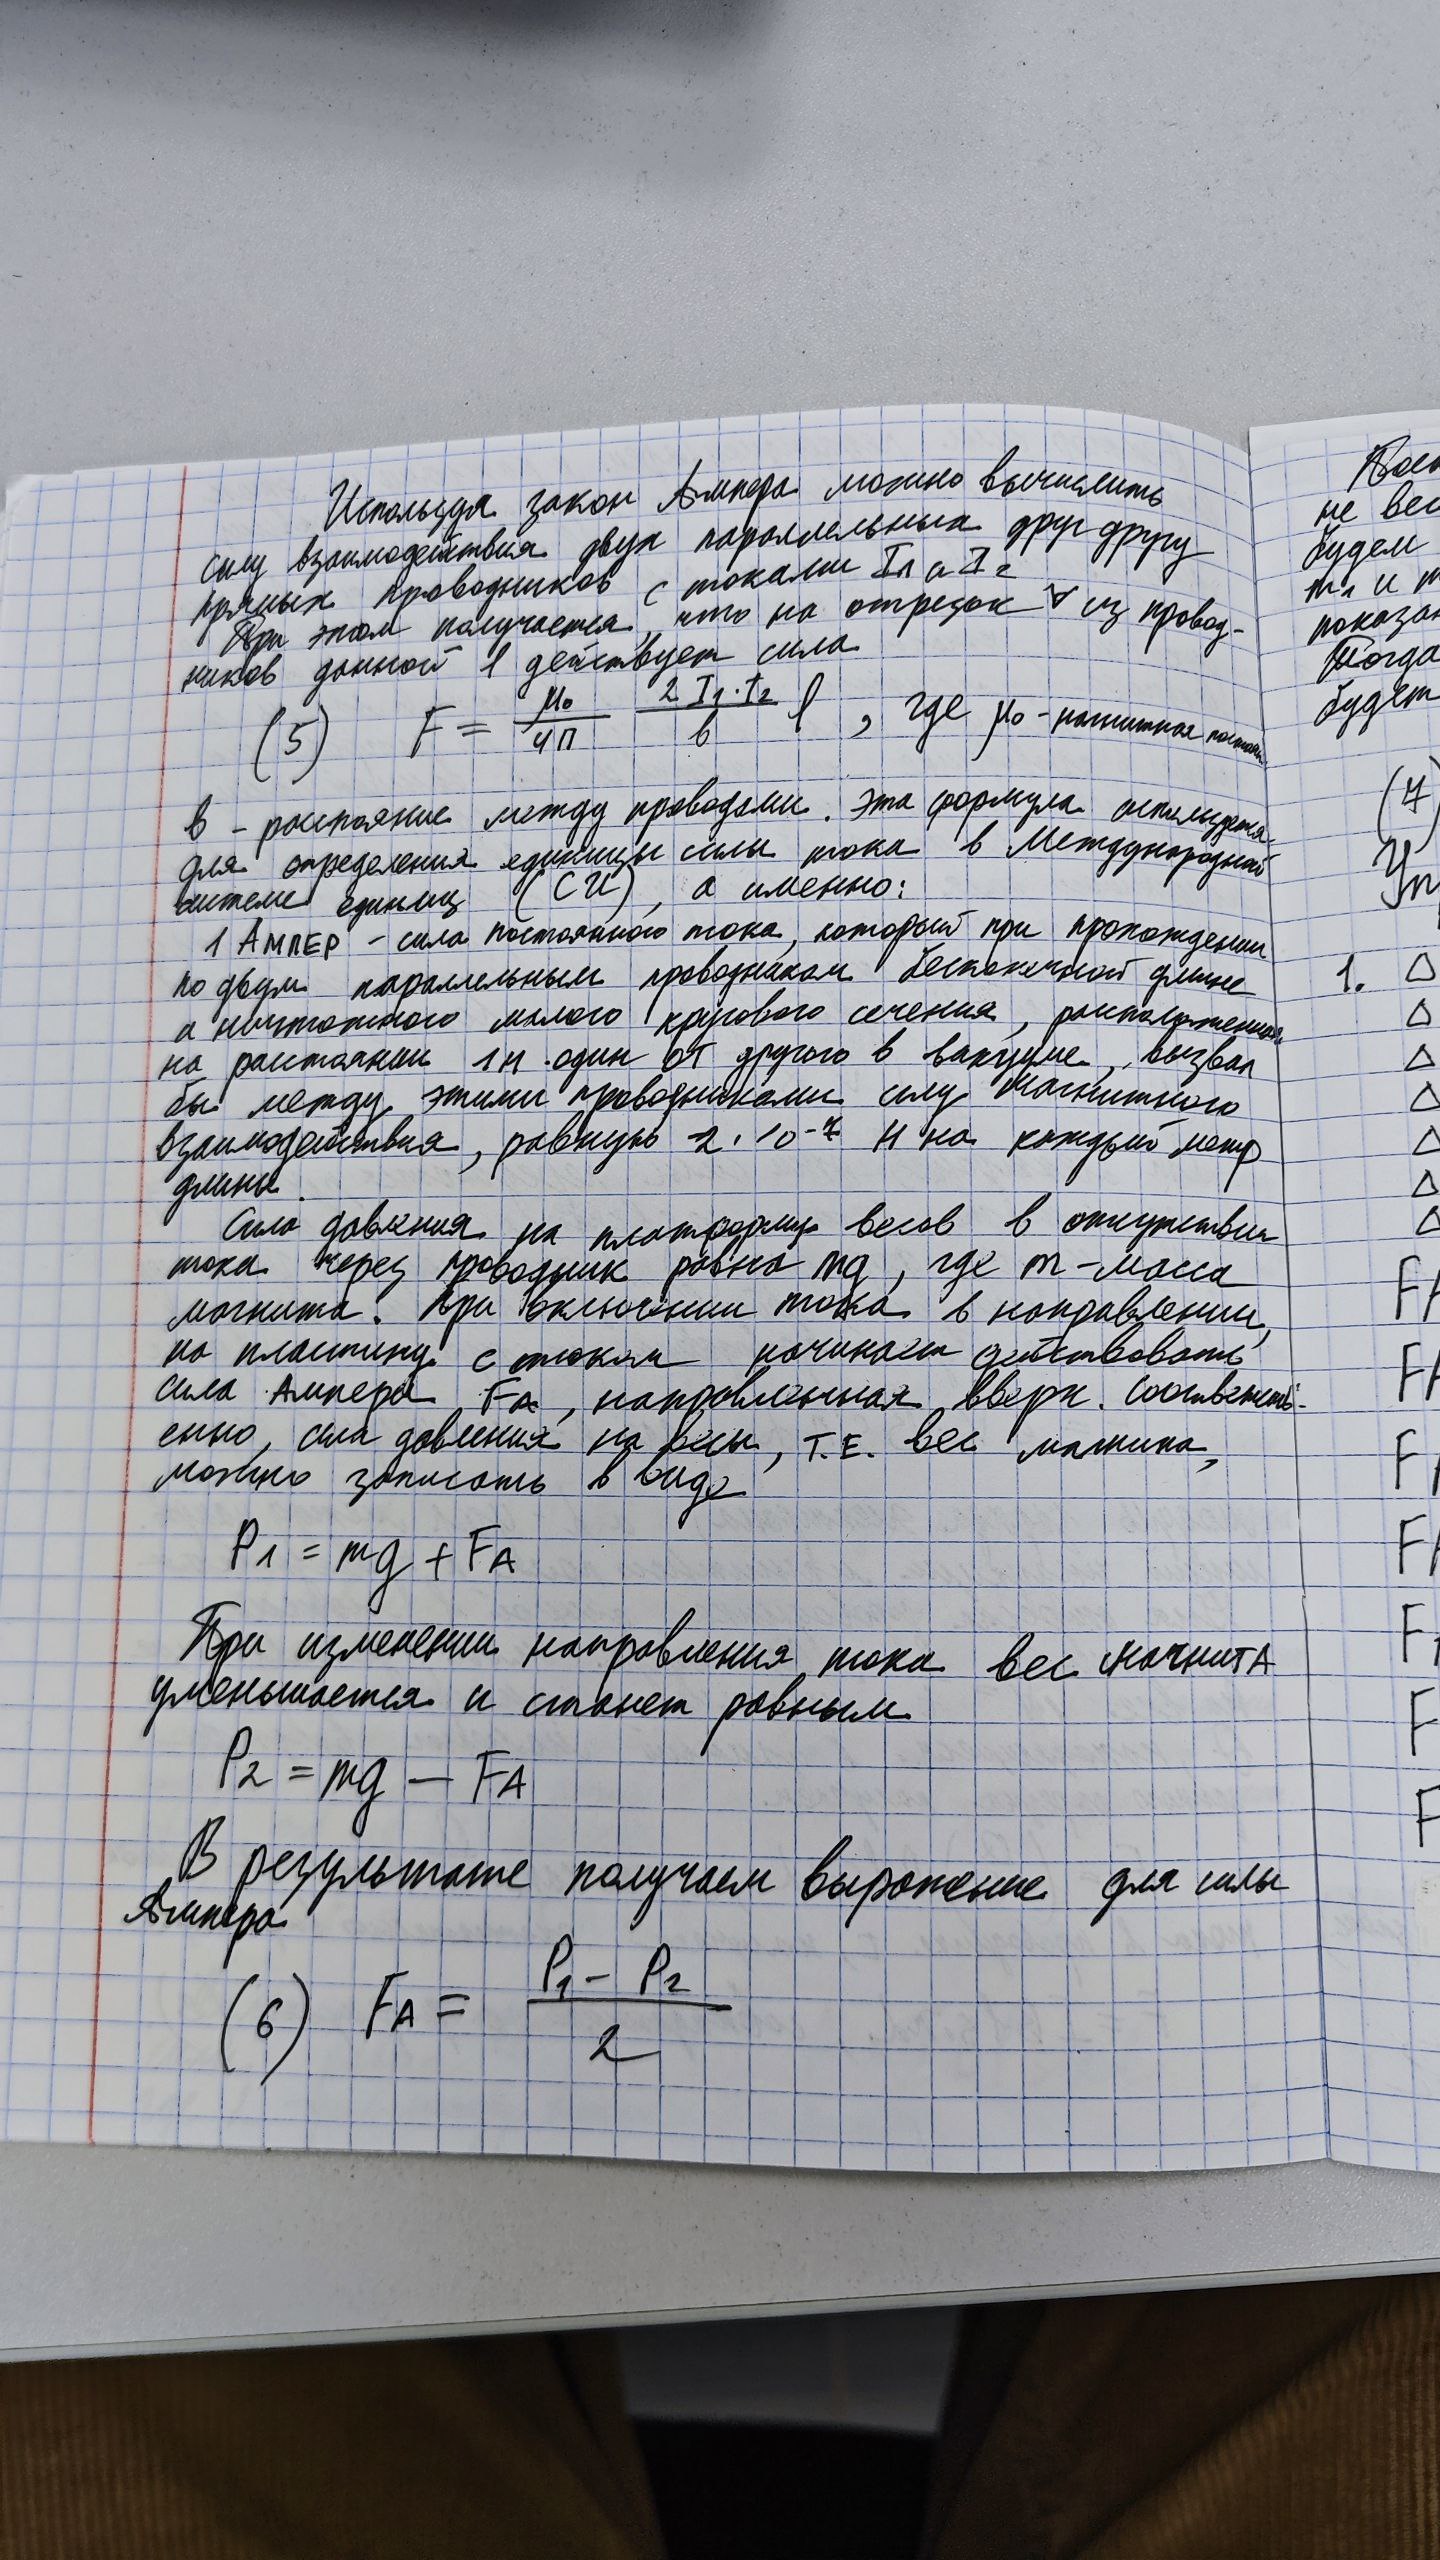 Используя закон Ампера можно вычислить
силу взаимодействия двух параллельных друг другу
прямых проводников с токами I1 и I2
При этом получается, что на отрезок ∀ из провод-
ников данной l действует сила
(5) F = μ0/4π 2 I1·I2/b l , где μ0 - магнитная постоян.
b - расстояние между проводами. Эта формула используется
для определения единицы силы тока в Международной
системе единиц (СИ), а именно:
1 АМПЕР - сила постоянного тока, который при прохождении
по двум параллельным проводникам бесконечной длине
и ничтожного малого кругового сечения, расположенным
на расстоянии 1м один от другого в вакууме, вызвал
бы между этими проводниками силу магнитного
взаимодействия, равную 2·10⁻⁷ Н на каждый метр
длины.
Сила давления на платформу весов в отсутствии
тока через проводник равна mg, где m - масса
магнита. При включении тока в направлении,
на пластину с током начинает действовать
сила Ампера FA, направленная вверх. Соответств-
енно, сила давления на весы, т.е. вес магнита,
можно записать в виде
P1 = mg + FA
При изменении направления тока вес магнита
уменьшается и станет равным
P2 = mg - FA
В результате получаем выражение для силы
Ампера
(6) FA = P1 - P2 / 2
не вес
будем
m1 и m
показан
Тогда
будет
(7)
1. Δ
Δ
Δ
Δ
Δ
Δ
Δ
FA
FA
F
FA
F
F
F